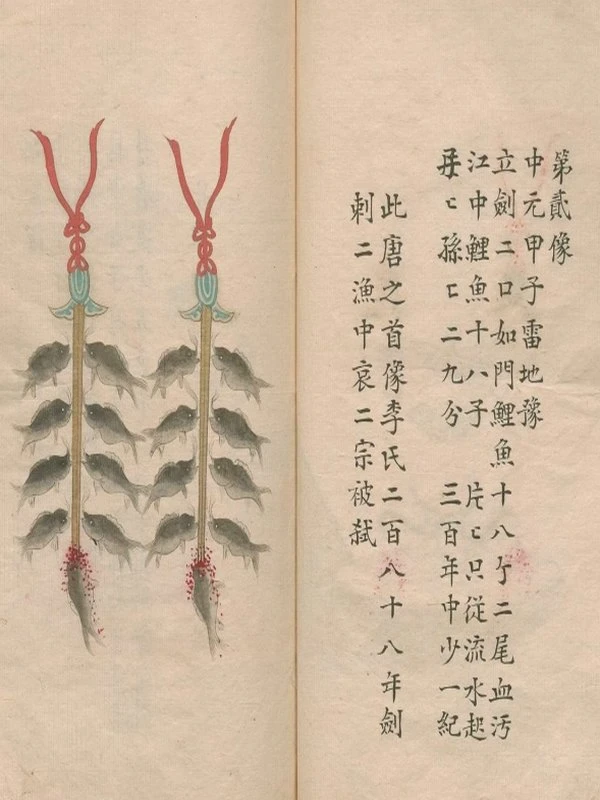 第貳像
中元甲子雷地豫
立劍二口如門鯉魚十八亇二尾血污
江中鯉魚十八子 片〻只從流水起
〻孫〻二九分 三百年中少一紀
此唐之首像李氏二百八十八年劍
刺二漁中哀二宗被弒